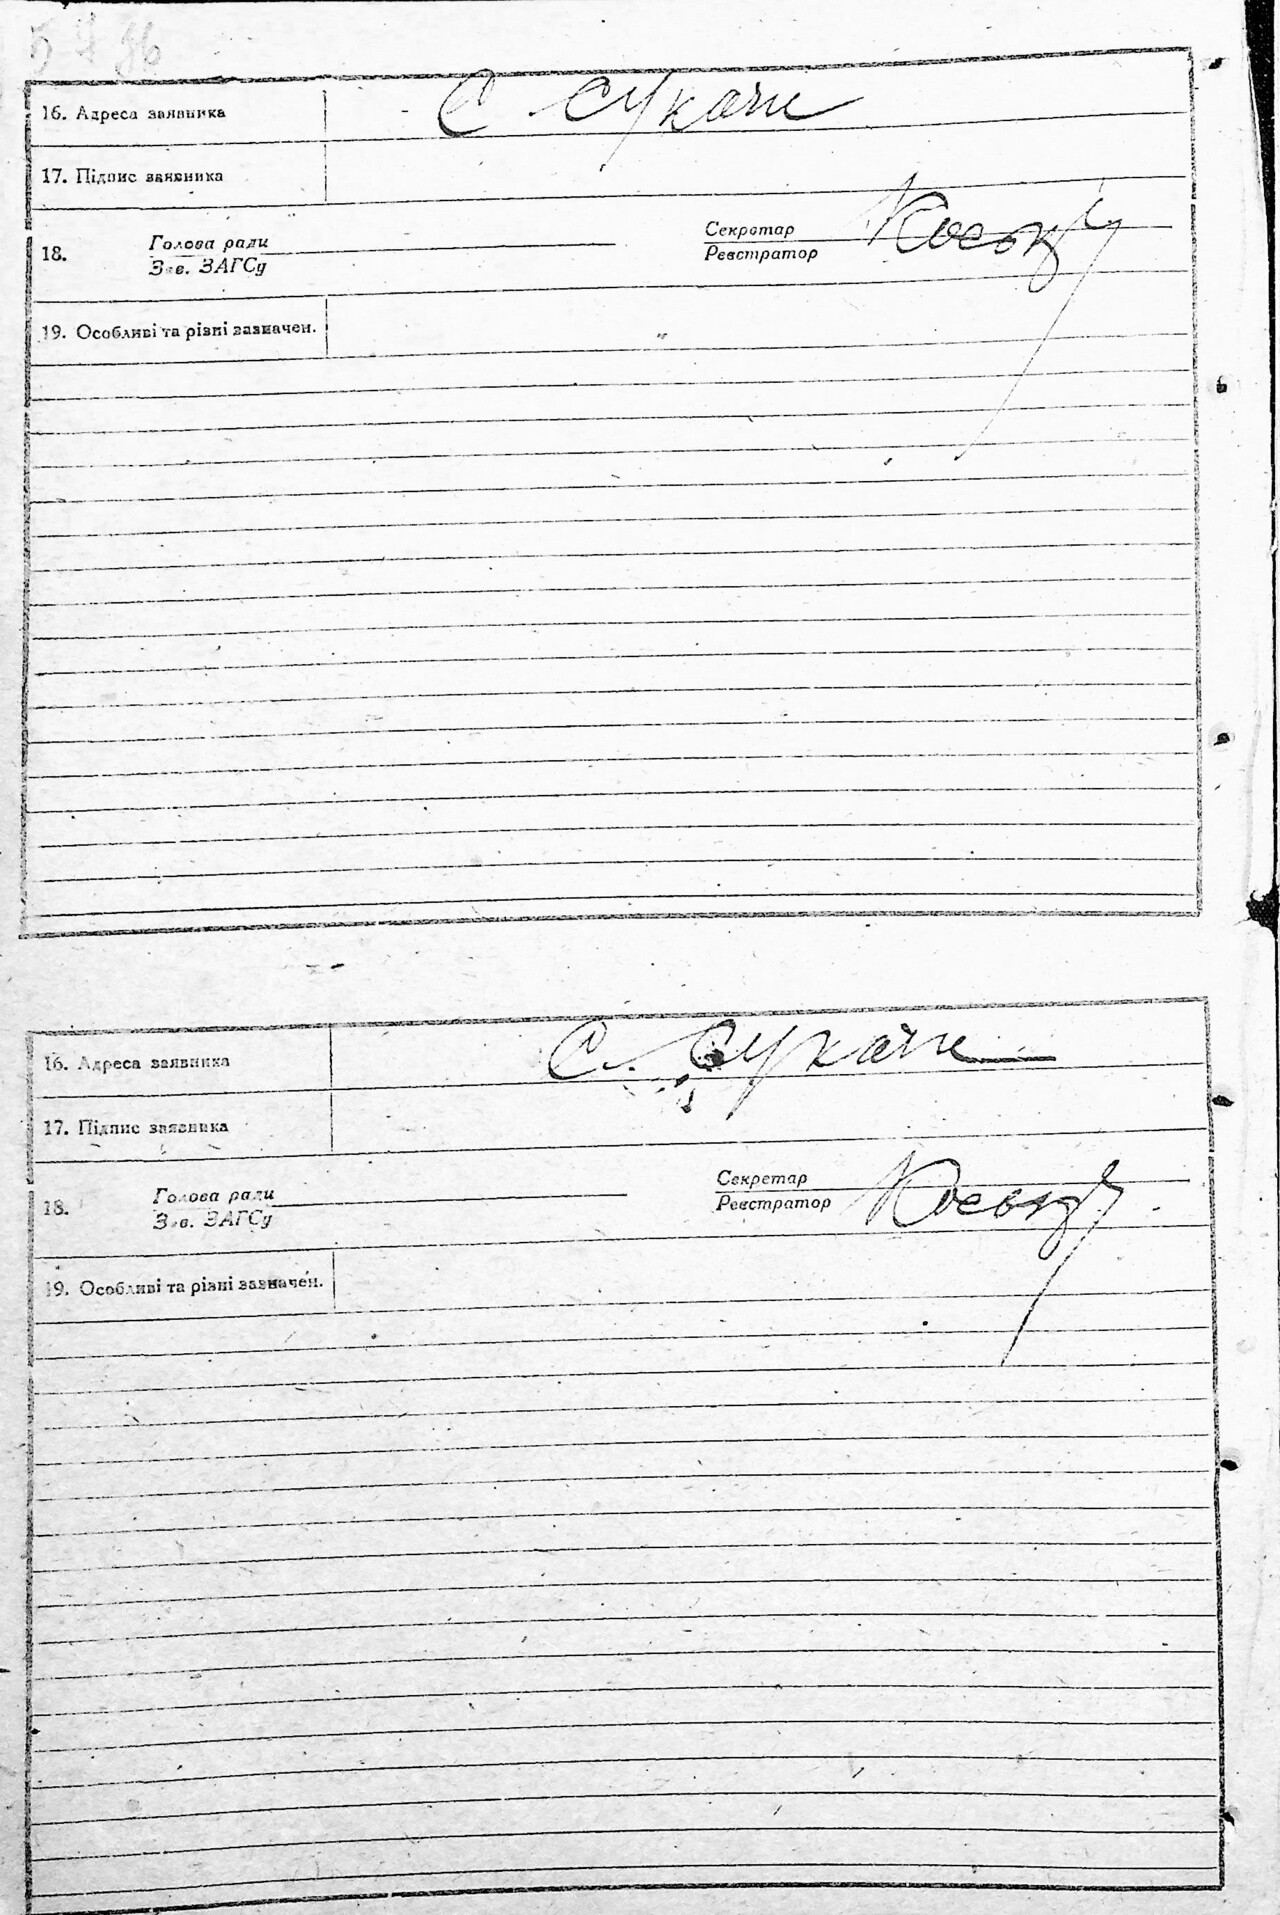 16. Адреса заявника С Сукачи
17. Підпис заявника
18. Голова ради Секретар
Зав. ЗАГСу Реєстратор
19. Особливі та різні зазначен.
16. Адреса заявника С. Сукачи
17. Підпис заявника
18. Голова ради Секретар
Зав. ЗАГСу Реєстратор
19. Особливі та різні зазначен.